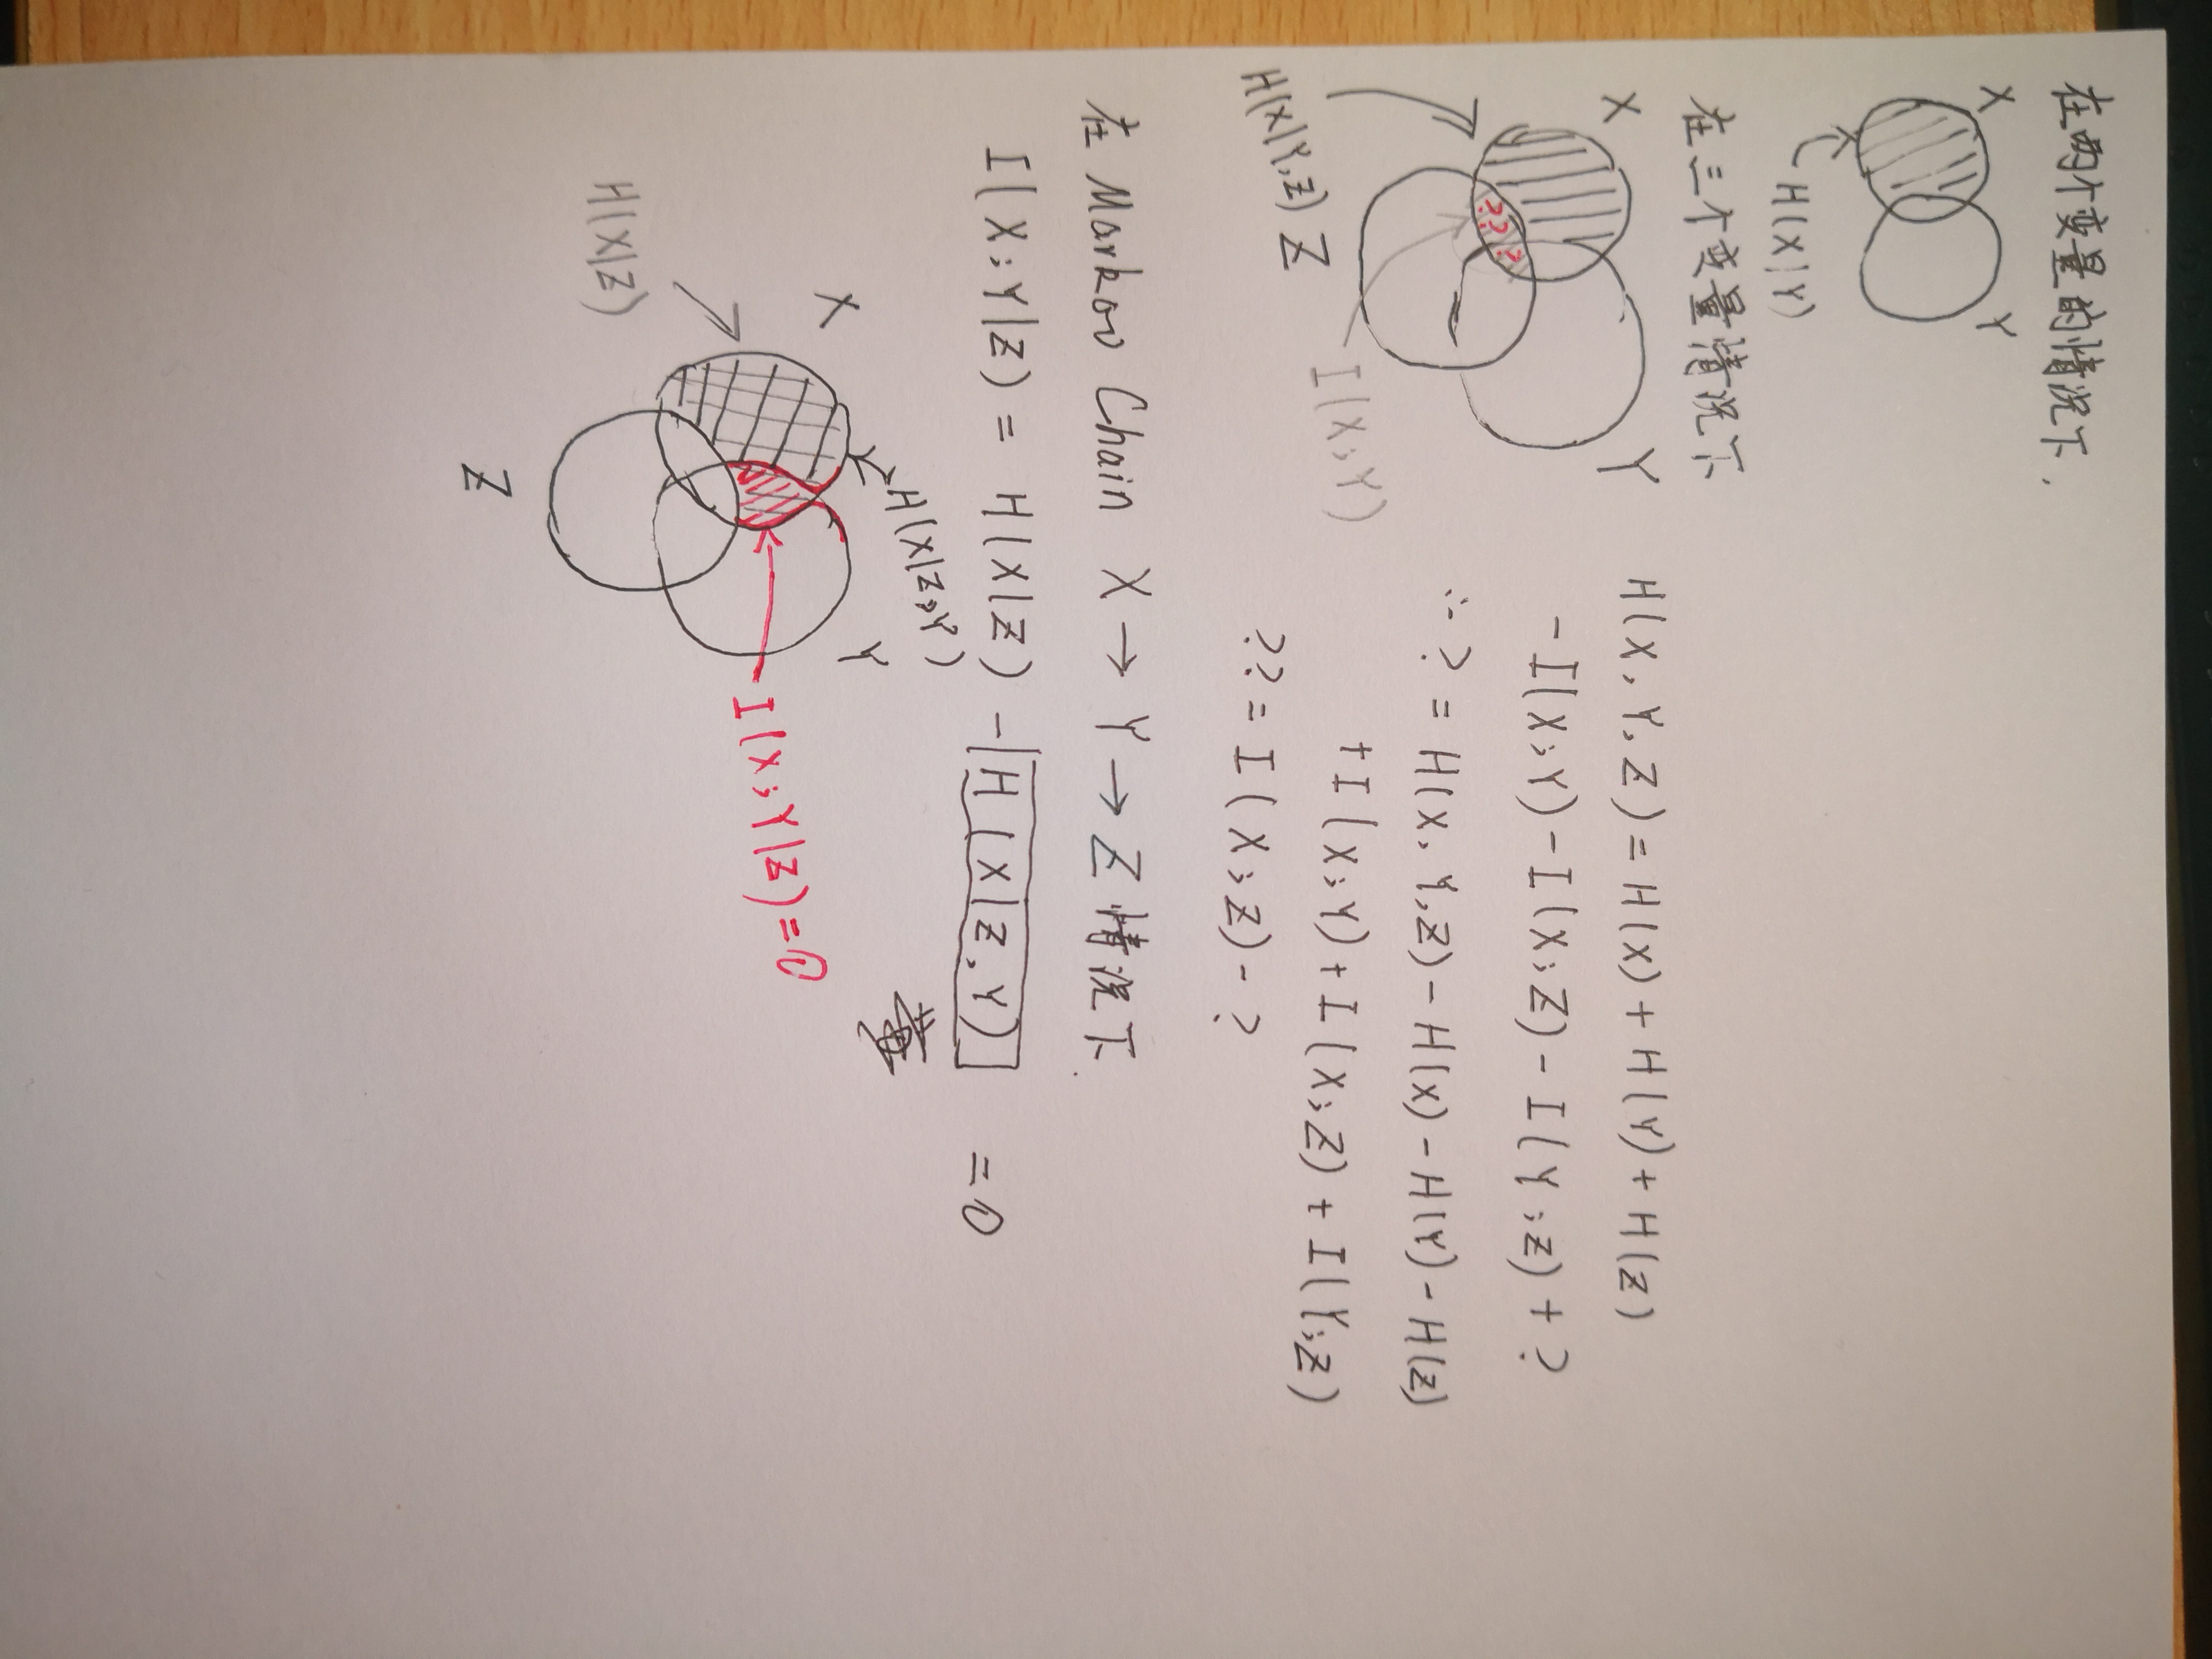 在两个变量的情况下.
X Y
H(X|Y)
在三个变量情况下
X Y
?? ?
H(X|Y,Z) Z I(X;Y)
H(X,Y,Z)=H(X)+H(Y)+H(Z)
-I(X;Y)-I(X;Z)-I(Y;Z)+?
∴?=H(X,Y,Z)-H(X)-H(Y)-H(Z)
+I(X;Y)+I(X;Z)+I(Y;Z)
??=I(X;Z)-?
在 Markov Chain X→Y→Z 情况下.
I(X;Y|Z)=H(X|Z)-H(X|Z,Y)=0
H(X|Z,Y)
X Y
I(X;Y|Z)=0
H(X|Z)
Z